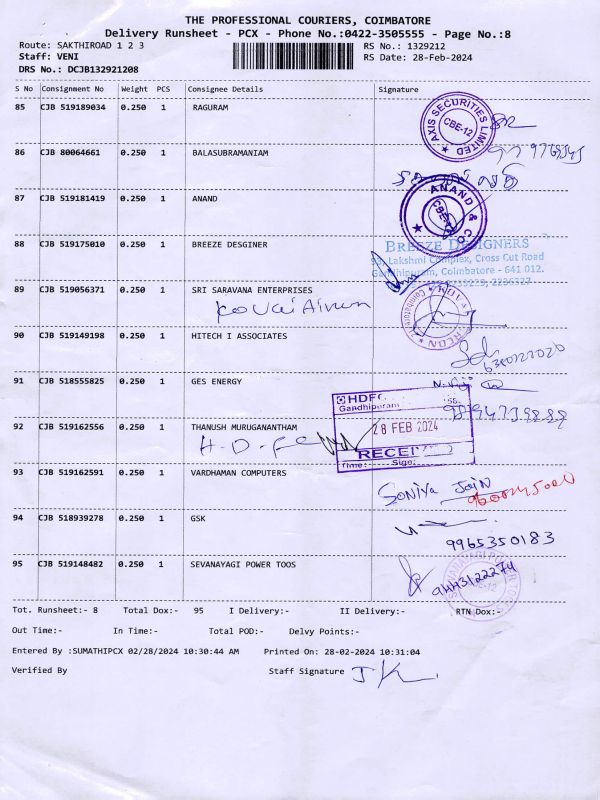 THE PROFESSIONAL COURIERS, COIMBATORE
Delivery Runsheet - PCX - Phone No.:0422-3505555 - Page No.:8
Route: SAKTHIROAD 1 2 3 RS No.: 1329212
Staff: VENI RS Date: 28-Feb-2024
DRS No.: DCJB132921208
S No Consignment No Weight PCS Consignee Details Signature
85 CJB 519189034 0.250 1 RAGURAM
AXIS SECURITIES LIMITED
CBE-12
86 CJB 80064661 0.250 1 BALASUBRAMANIAM
87 CJB 519181419 0.250 1 ANAND
ANAND & CO
88 CJB 519175010 0.250 1 BREEZE DESGINER
BREEZE DESIGNERS
Lakshmi Complex, Cross Cut Road
Gandhipuram, Coimbatore - 641 012.
89 CJB 519056371 0.250 1 SRI SARAVANA ENTERPRISES
Coimbatore
90 CJB 519149198 0.250 1 HITECH I ASSOCIATES
91 CJB 518555825 0.250 1 GES ENERGY
HDFC
Gandhipuram
28 FEB 2024
92 CJB 519162556 0.250 1 THANUSH MURUGANANTHAM
H.D.F.C
HDFC
RECEI
Time: Sign:
93 CJB 519162591 0.250 1 VARDHAMAN COMPUTERS
Soniya Jain
94 CJB 518939278 0.250 1 GSK
9965350183
95 CJB 519148482 0.250 1 SEVANAYAGI POWER TOOS
9443122274
Tot. Runsheet:- 8 Total Dox:- 95 I Delivery:- II Delivery:- RTN Dox:-
Out Time:- In Time:- Total POD:- Delvy Points:-
Entered By :SUMATHIPCX 02/28/2024 10:30:44 AM Printed On: 28-02-2024 10:31:04
Verified By Staff Signature